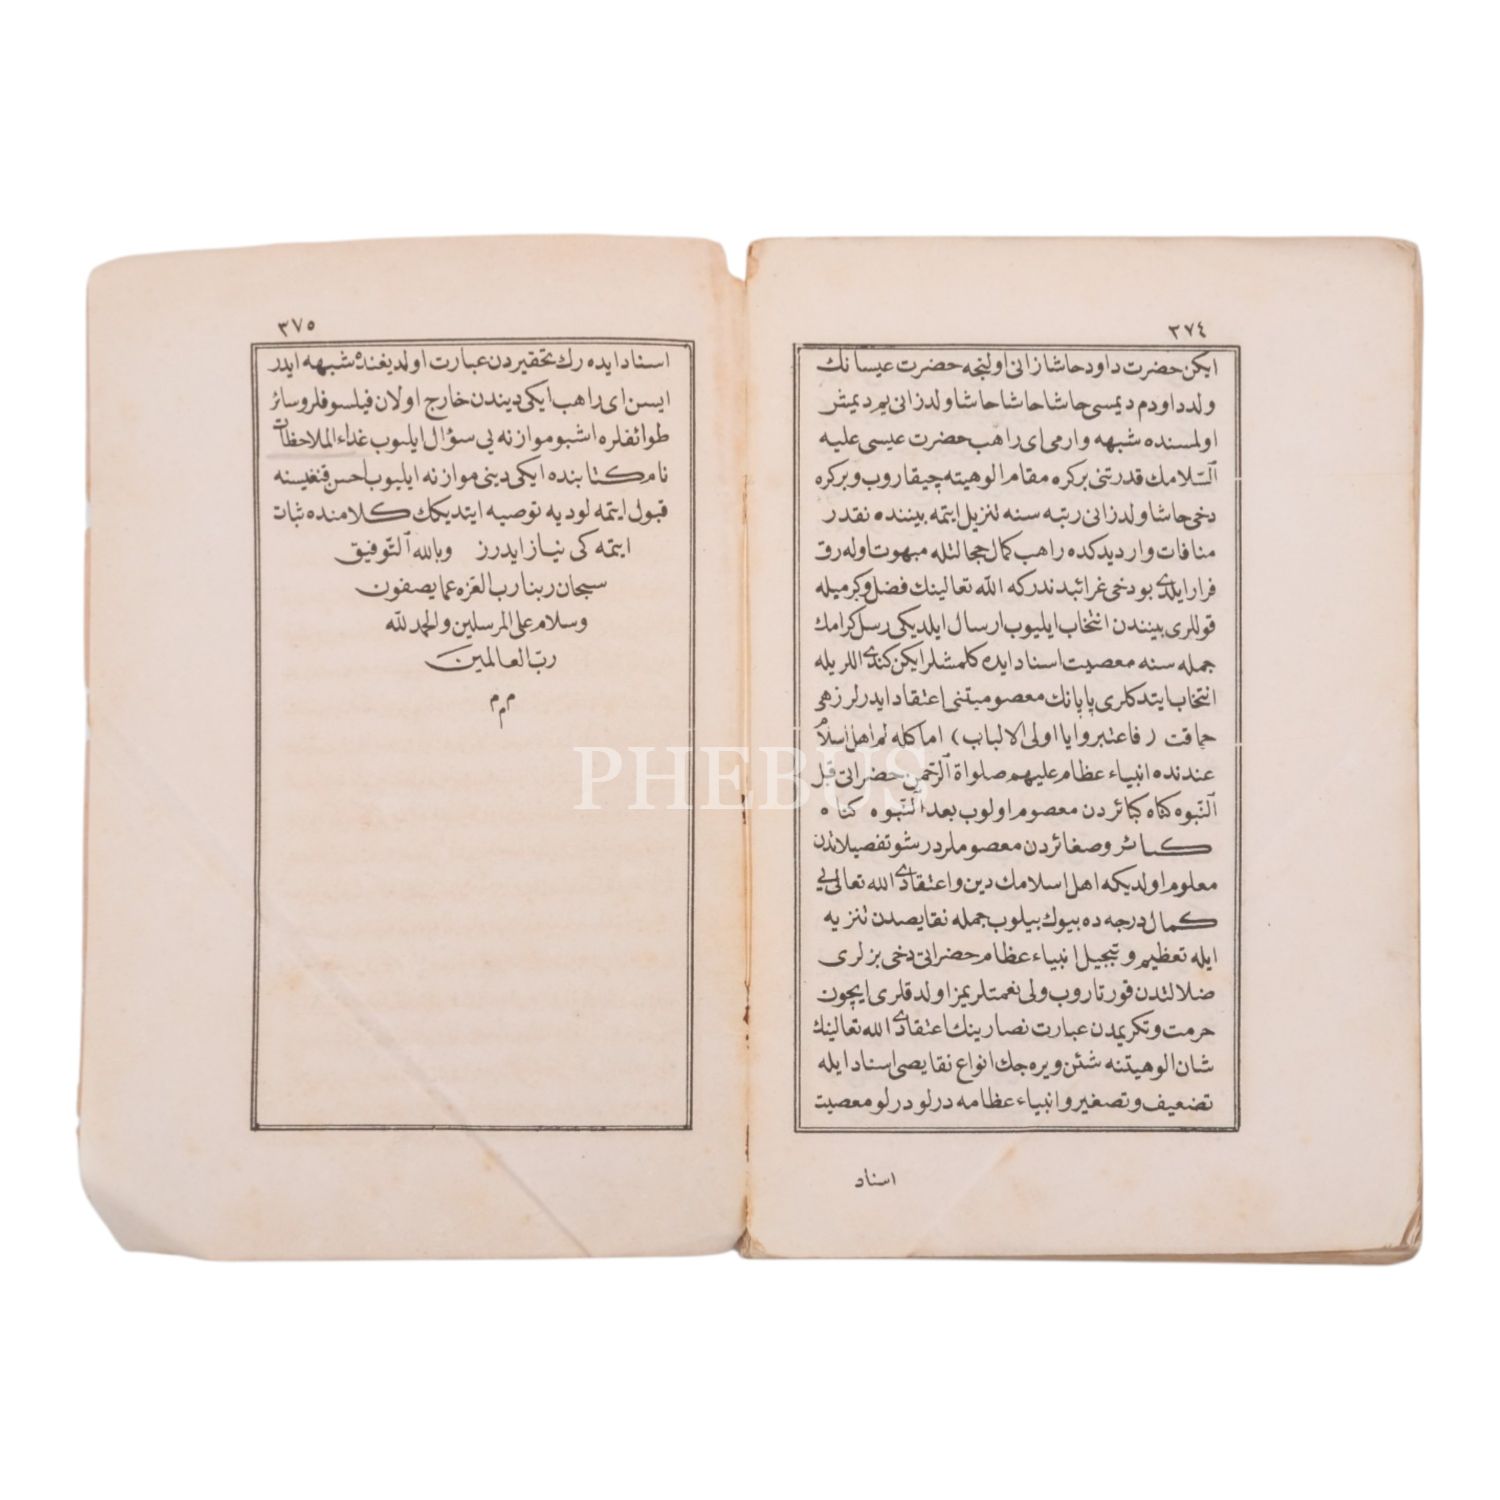 ٣٧٤
ايكن حضرت داود حاشا زانى اولنجه حضرت عيسانك
ولد داودم ديمسى حاشا حاشا حاشا ولد زانى يم ديمش
اولمسنده شبهه وارمى اى راهب حضرت عيسى عليه
السّلامك قدرتنى بركره مقام الوهيته چيقاروب وبركره
دخى حاشا ولد زانى رتبه سنه تنزيل ايتمه بيننده نقدر
منافات وارديدكده راهب كمال حجالتله مبهوت اوله رق
فرار ايلدى بودخى غرائبدندركه الله تعالينك فضل وكرميله
قوللرى بينندن انتخاب ايليوب ارسال ايلديكى رسل كرامك
جمله سنه معصيت اسناد ايده كلمشلر ايكن كندى اللريله
انتخاب ايتدكلرى پاپانك معصوميتنى اعتقاد ايدرلر زهى
حماقت (فاعتبروا يا اولى الالباب) اما كله لم اهل اسلام
عندنده انبياء عظام عليهم صلواة الرّحمن حضراتى قبل
النّبوه كناه كبائردن معصوم اولوب بعد النّبوه كناه
كبائر وصغائردن معصوملردر شو تفصيلاتدن
معلوم اولديكه اهل اسلامك دين واعتقادى الله تعالى يى
كمال درجه ده بيوك بيلوب جمله نقايصدن تنزيه
ايله تعظيم وتبجيل انبياء عظام حضراتى دخى بزلرى
ضلالتدن قورتاروب ولى نعمتلريمز اولدقلرى ايچون
حرمت وتكريمدن عبارت نصارينك اعتقادى الله تعالينك
شان الوهيتنه شئن ويره جك انواع نقايصى اسناد ايله
تضعيف وتصغير وانبياء عظامه درلو درلو معصيت
اسناد
٣٧٥
اسناد ايده رك تحقيردن عبارت اولديغنده شبهه ايدر
ايسن اى راهب ايكى ديندن خارج اولان فيلسوفلر وسائر
طوائفلره اشبو موازنه يى سؤال ايليوب غداء الملاحظات
نام كتابنده ايكى دينى موازنه ايليوب احسن قنغيسنه
قبول ايتمه لوديه توصيه ايتديكك كلامنده ثبات
ايتمه كى نياز ايدرز وبالله التّوفيق
سبحان ربنا رب العزه عما يصفون
وسلام على المرسلين والحمد لله
ربّ العالمين
م م م
PHEBUS